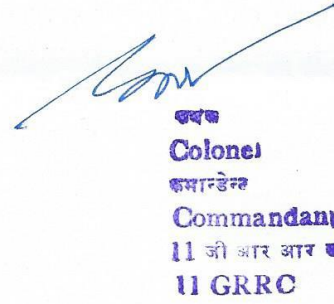 Colonel
कमान्डेन्ट
Commandant
11 जी आर आर
11 GRRC